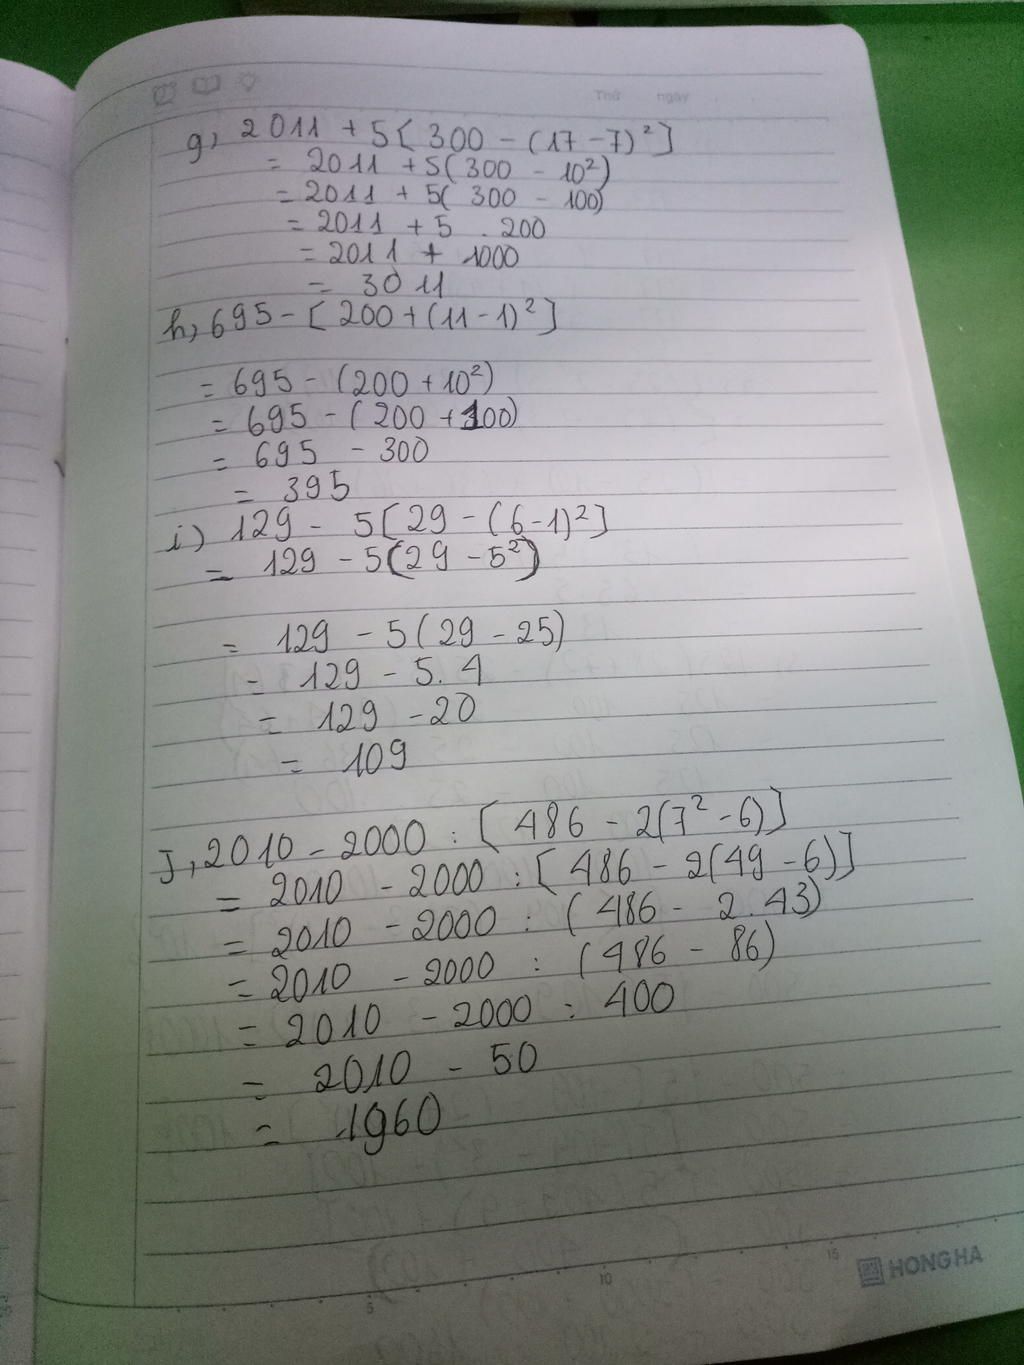 Thứ ngày
g, 2011 + 5[300 - (17 - 7)²]
= 2011 + 5(300 - 10²)
= 2011 + 5(300 - 100)
= 2011 + 5 . 200
= 2011 + 1000
= 3011
h, 695 - [200 + (11 - 1)²]
= 695 - (200 + 10²)
= 695 - (200 + 100)
= 695 - 300
= 395
i) 129 - 5[29 - (6 - 1)²]
= 129 - 5(29 - 5²)
= 129 - 5(29 - 25)
= 129 - 5.4
= 129 - 20
= 109
J, 2010 - 2000 : [486 - 2(7² - 6)]
= 2010 - 2000 : [486 - 2(49 - 6)]
= 2010 - 2000 : (486 - 2.43)
= 2010 - 2000 : (486 - 86)
= 2010 - 2000 : 400
= 2010 - 50
= 1960
5 10 15
HONG HA